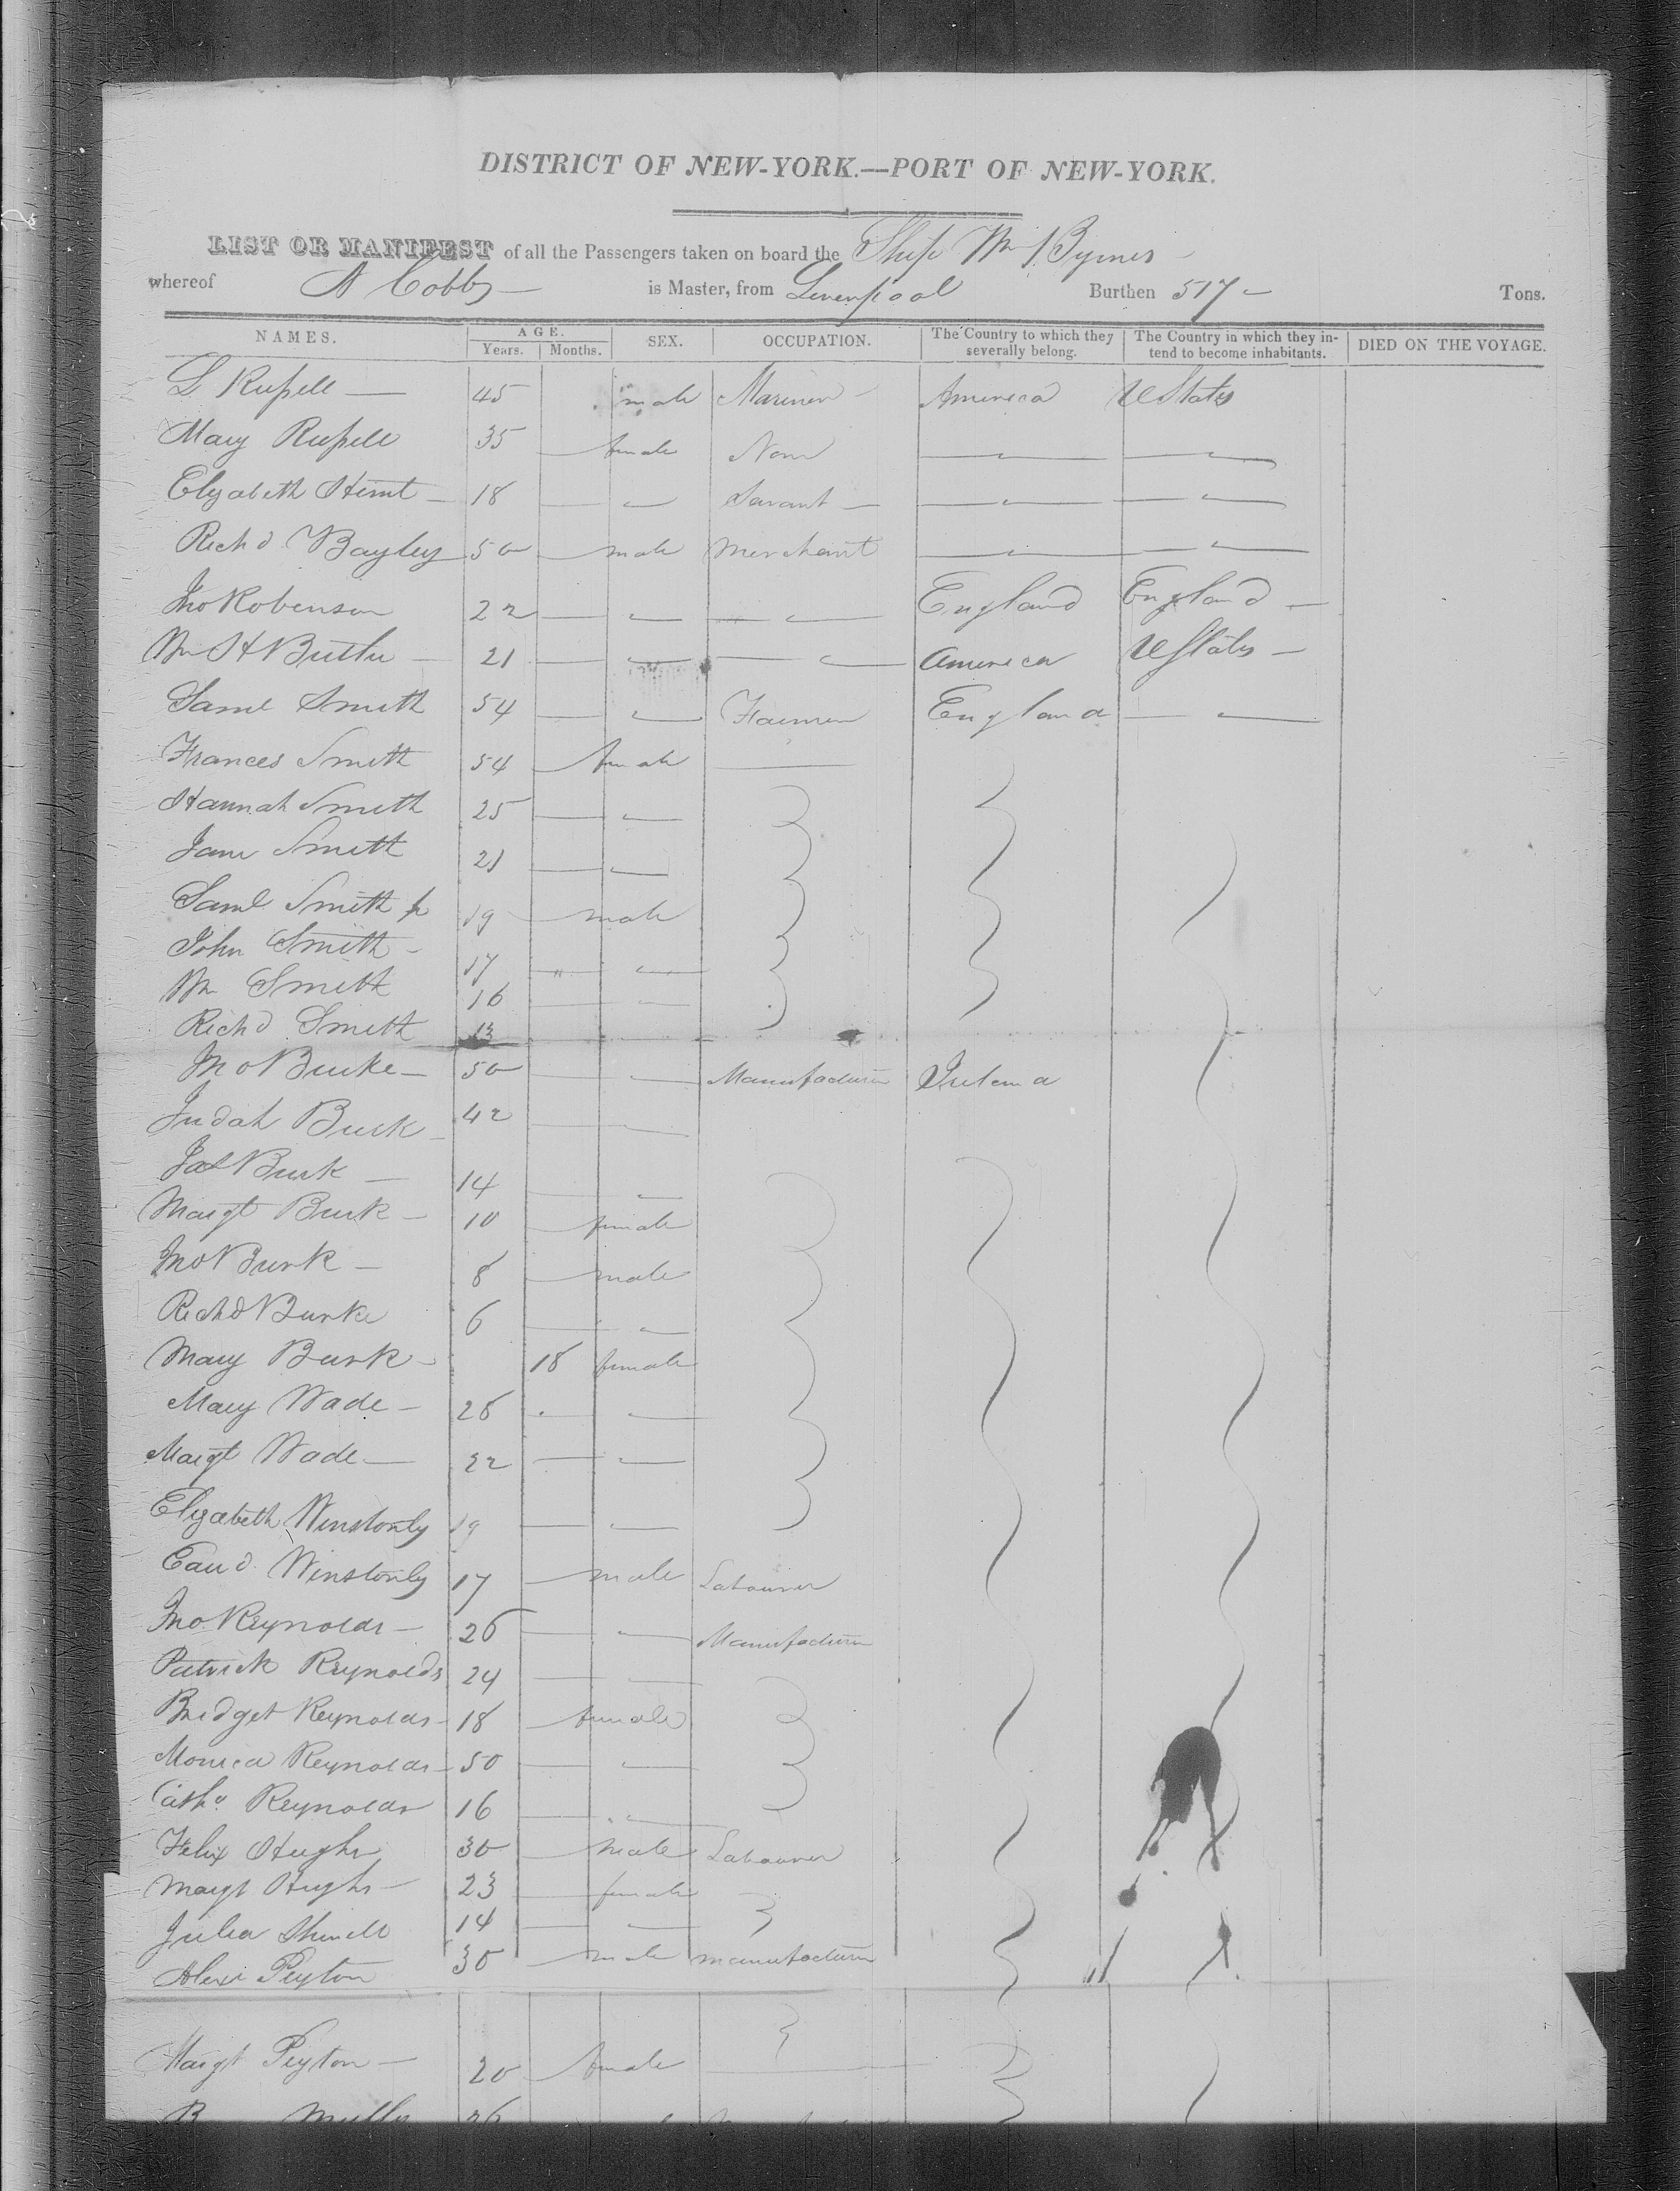 DISTRICT OF NEW-YORK.—PORT OF NEW-YORK.
LIST OR MANIFEST of all the Passengers taken on board the Ship Wm Byrnes
whereof A Cobb is Master, from Liverpool Burthen 517 Tons.
NAMES. AGE. Years. Months. SEX. OCCUPATION. The Country to which they severally belong. The Country in which they intend to become inhabitants. DIED ON THE VOYAGE.
L Russell — 45 male Mariner America U States
Mary Russell 35 — female None — " — — " —
Elizabeth — 18 — " Servant — — " — — " —
Richd Bayley 50 — male Merchant — " — — " —
Jno Robenson 22 — " — " — England England —
Wm H Butler — 21 — " — " — America U States —
Saml Smith 54 — " Farmer England — " —
Frances Smith 54 — female —
Hannah Smith 25 — "
Jane Smith 21 — "
Saml Smith jr 19 — male
John Smith — 17 " "
Wm Smith 16 — "
Richd Smith 13
Jno Burke — 50 — " Manufacturer Ireland
Judah Burk 42 — —
Jas Burk — 14 — "
Margt Burk — 10 — female
Jno Burk — 8 — male
Richd Burke 6 — "
Mary Burk — 18 female
Mary Wade — 26 . "
Margt Wade — 22 — "
Elizabeth Winstonly 19 — "
Winstonly 17 — male Labourer
Jno Reynolds — 26 — " Manufacturer
Patrick Reynolds 24 — —
Bridget Reynolds — 18 — female
Monica Reynolds — 50 — "
Cath Reynolds 16 — "
Felix Hughs 30 — male Labourer
Margt Hughs — 23 — female
Julia 14 — "
Alexr Peyton 30 — male manufacturer
Margt Peyton — 20 — female —
26